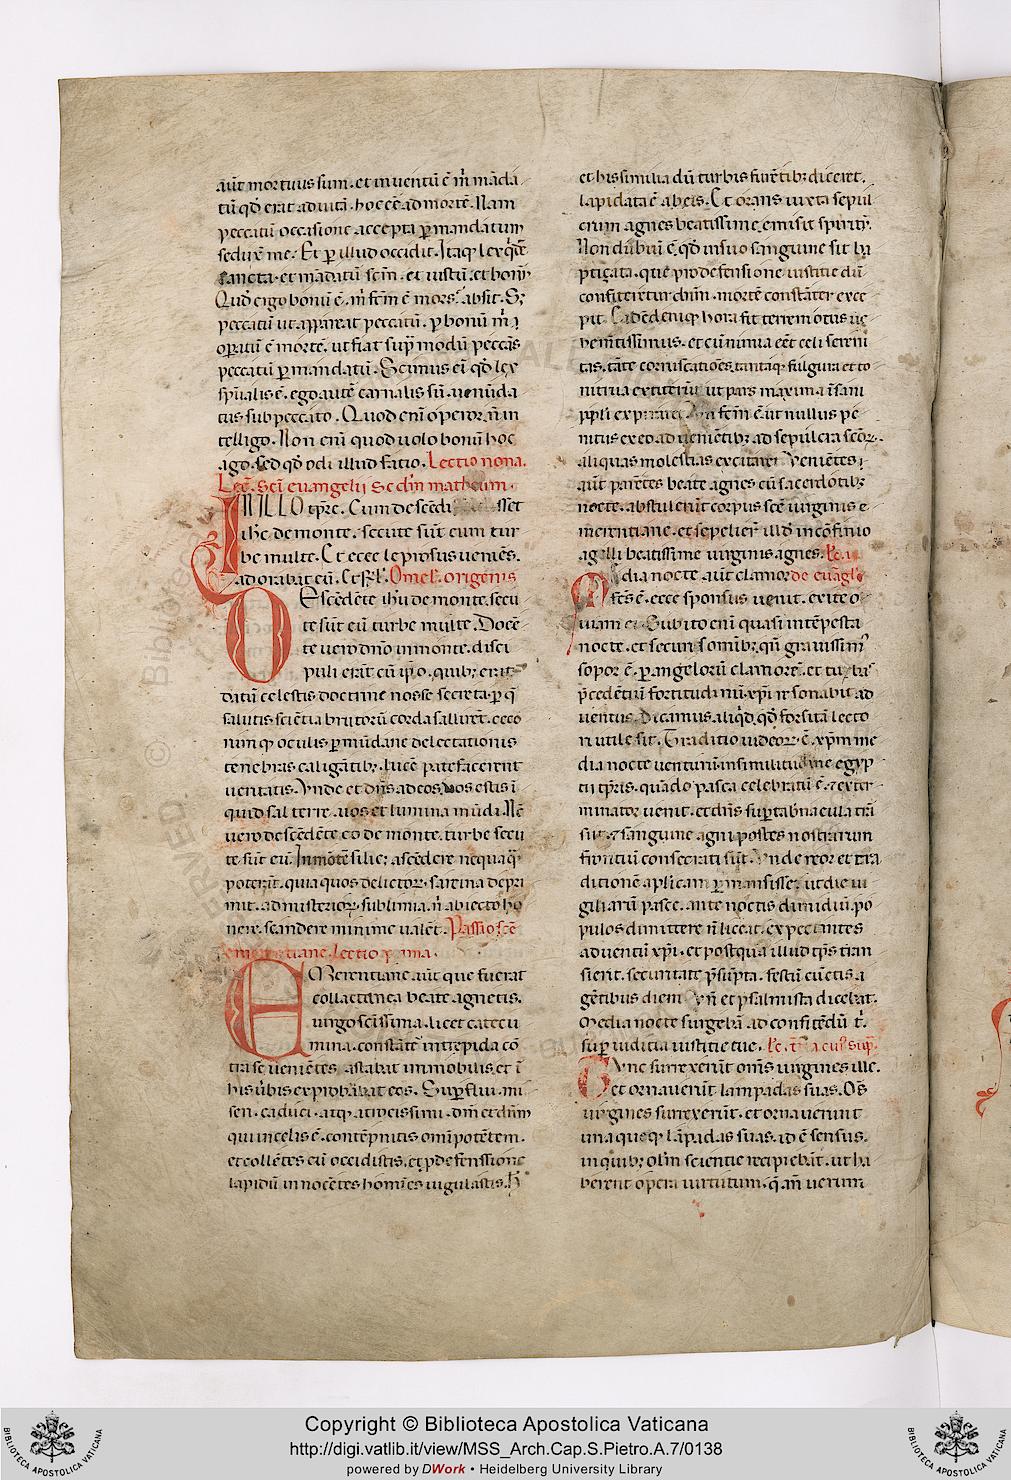 aūt mortuus sum. et inuentū ē m̄ māda
tū qđ erat ad uitā. hoc eē ad mortē. Nam
peccatū occasione accepta p mandatum
seduxͭ me. Et p illud occidit. Itaq̗ lex qͥdē
sancta. et mādatū scm̄. et iustū. et bonū
Quđ ergo bonū ē. m̄ fcm̄ ē mors. absit. Sȝ
peccatū ut appareat peccatū. p bonū m̄
opatū ē mortē. ut fiat supͣ modū peccās
peccatū p mandatū. Scimus eī qđ lex
spūalis ē. ego autē carnalis sū. uenūda
tus sub peccato. Quod enī operor ñ in
telligo. Non enī quod uolo bonū hoc
ago. sed qđ odi illud facio. Lectio nona.
Lec̄. Scī euangelij Secdm̄ matheum.
IN ILLO tp̄re. Cum descēdisset
ih̄c de monte. secute sūt eum tur
be multe. Et ecce leprosus ueniēs.
adorabat eū. Et rl̄. Omeł. origenis
Descēdēte ihū de monte. secu
te sūt eū turbe multe. Docē
te uero dn̄o in monte. disci
puli erāt cū ip̄o. quibȝ erat
datū celestis doctrine nosse secreta. p q̄
salutis sciētia brutorū corda salliret. ceco
rumq̗ oculis p mūdane delectationis
tenebras caligātibȝ. lucē patefacerent
ueritatis. Vnde et dn̄s ad eos. Vos estis ī
quid sal terre. uos et lumina mūdi. Nē
uero descēdēte eo de monte. turbe secu
te sūt eū. In mōtē silicȝ ascēdere nequaqͣ
poterāt. quia quos delictoꝝ. sarcina depri
mit. ad misterioꝝ sublimia. ñ abiecto ho
nere. scandere minime ualēt. Passio scē
emerentiane. Lectio prima.
EMerentiane aūt que fuerat
collactanea beate agnetis.
uirgo scīssima. licet catecu
mina. constāte intrepida cō
tra se ueniētes astabat immobilis. et ī
his ūbis exprobabat eos. Supflui. mi
seri. caduci. atq̗ atrocissimi. dm̄ et dn̄m
qui in celis ē. contēpnitis omīpotētem.
et collētes eū occidistis. et p defenssione
lapidū innocētes homīes iugulastis. H
et his similia dū turbis furētibȝ diceret.
lapidata ē ab eis. Et orans iuxta sepul
crum agnes beatissime emisit spiritū.
Non dubiū ē. qđ in suo sanguine sit ba
pticata. que pro defensione iustitie dū
confiteretur dn̄m. mortē constāter exce
pit. Eadē deniq̗ hora fit terremotus ue
hemtissimus. et cū nimia eēt celi sereni
tas. tāte coruscationēs tantaq̗ fulgura et to
nitrua extiterūt ut pars maxima īsani
pp̄li expiraret. Ita fcm̄ ē ut nullus pe
nitus ex eo ad uenientibȝ ad sepulcra scōꝝ
aliquas molestias excitaret. Venientes
aūt parētes beate agnes cū sacerdotibȝ
nocte. abstulerūt corpus scē uirginis e
merentiane. et sepelierͭ illđ in cōfinio
agelli beatissime uirginis agnes.
Media nocte aūt clamor de euāglo
fcs ē. ecce sponsus uenit. exite o
uiam ei. Subito enī quasi intēpesta
nocte. et securis omībȝ. qū grauissim̄
sopor ē. p angelorū clamorē. et tubas
p̄cedētiū fortitudinū. xp̄i resonabit ad
uentus. Dicamus aliqͥd. qđ forsitā lecto
ri utile sit. Traditio iudeoꝝ ē. xp̄m me
dia nocte uenturū in similitudine egyp
tii tp̄ris. quādo pasca celebratū ē. ⁊ exter
minator uenit. et dn̄s sup tabnacula trā
siit. ⁊ sanguine agni postes nostrarum
frontiū consecrati sūt. Vnde reor et tra
ditionē aplicam pmansisse. ut die ui
giliarū pasce. ante noctis dimidiū. po
pulos dimittere ñ liceat. expectantes
aduentū xp̄i. et postquā illud tp̄s tran
sierit. securitate p̄sūpta. festū cūctis a
gētibus diem. Vñ et psalmista dicebat.
Media nocte surgebā ad confitēdū t.
sup iudicia iustitie tue.
Tunc surrexerūt om̄s uirgines ille.
et ornauerūt lampadas suas. Om̄s
uirgines surrexerūt. et ornauerunt
unaqueq̗ lāpadas suas. id ē sensus.
in quibȝ olim scientie recipiebāt. ut ha
berent opera uirtutum. q̄ añ uerum
Copyright © Biblioteca Apostolica Vaticana
http://digi.vatlib.it/view/MSS_Arch.Cap.S.Pietro.A.7/0138
powered by DWork • Heidelberg University Library